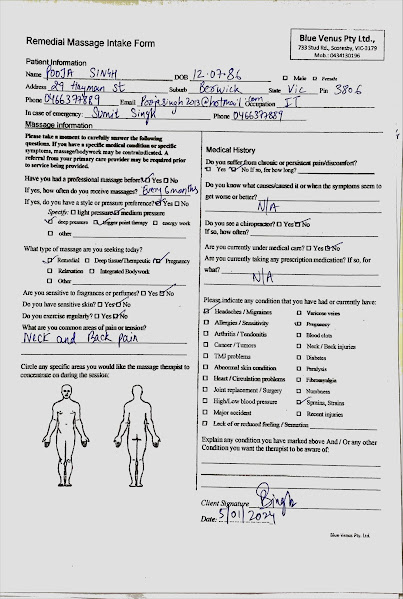 Remedial Massage Intake Form
Blue Venus Pty Ltd.,
733 Stud Rd., Scoresby, VIC-3179
Mob.: 0434130196
Patient Information
Name POOJA SINGH DOB 12-07-86 Male Female
Address 29 Hayman st Suburb Berwick State Vic Pin 3806
Phone 0466377889 Email Poojasingh2013@hotmail.com Occupation IT
In case of emergency: Sumit Singh Phone 0466377889
Massage information
Please take a moment to carefully answer the following
questions. If you have a specific medical condition or specific
symptoms, massage/bodywork may be contraindicated. A
referral from your primary care provider may be required prior
to service being provided.
Have you had a professional massage before? Yes No
If yes, how often do you receive massages? Every 6 months
If yes, do you have a style or pressure preference? Yes No
Specify: light pressure medium pressure
deep pressure trigger point therapy energy work
other
What type of massage are you seeking today?
Remedial Deep tissue/Therapeutic Pregnancy
Relaxation Integrated Bodywork
Other
Are you sensitive to fragrances or perfumes? Yes No
Do you have sensitive skin? Yes No
Do you exercise regularly? Yes No
What are you common areas of pain or tension?
Neck and Back pain
Circle any specific areas you would like the massage therapist to
concentrate on during the session:
Medical History
Do you suffer from chronic or persistent pain/discomfort?
Yes No If so, for how long?
Do you know what causes/caused it or when the symptoms seem to
get worse or better?
N/A
Do you see a chiropractor? Yes No
If so, how often?
Are you currently under medical care? Yes No
Are you currently taking any prescription medication? If so, for
what?
N/A
Please, indicate any condition that you have had or currently have:
Headaches / Migraines Varicose veins
Allergies / Sensitivity Pregnancy
Arthritis / Tendonitis Blood clots
Cancer / Tumors Neck / Back injuries
TMJ problems Diabetes
Abnormal skin condition Paralysis
Heart / Circulation problems Fibromyalgia
Joint replacement / Surgery Numbness
High/Low blood pressure Sprains, Strains
Major accident Recent injuries
Lack of or reduced feeling / Sensation
Explain any condition you have marked above And / Or any other
Condition you want the therapist to be aware of:
Client Signature
Date: 5/01/2024
Blue Venus Pty. Ltd.